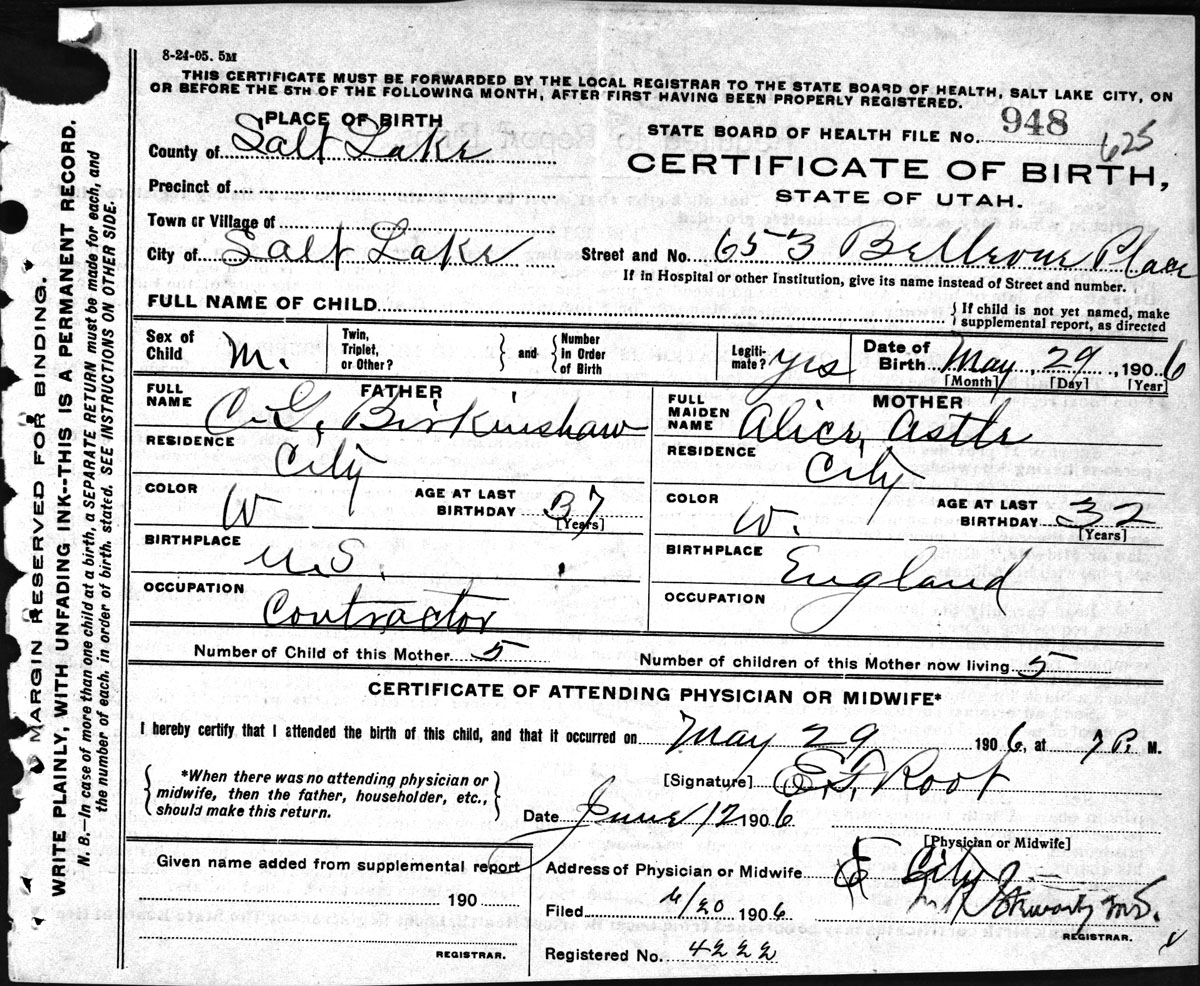 8-24-05. 5M
THIS CERTIFICATE MUST BE FORWARDED BY THE LOCAL REGISTRAR TO THE STATE BOARD OF HEALTH, SALT LAKE CITY, ON
OR BEFORE THE 5TH OF THE FOLLOWING MONTH, AFTER FIRST HAVING BEEN PROPERLY REGISTERED.
PLACE OF BIRTH
STATE BOARD OF HEALTH FILE No. 948 625
County of Salt Lake
CERTIFICATE OF BIRTH,
STATE OF UTAH.
Precinct of
Town or Village of
City of Salt Lake Street and No. 653 Bellevue Place
If in Hospital or other Institution, give its name instead of Street and number.
FULL NAME OF CHILD
If child is not yet named, make
supplemental report, as directed
Sex of Child M. Twin, Triplet, or Other? and Number in Order of Birth Legiti-mate? yes Date of Birth May, 29, 1906
[Month] [Day] [Year]
FULL NAME FATHER C. G. Birkinshaw
FULL MAIDEN NAME MOTHER Alice Astle
RESIDENCE City
RESIDENCE City
COLOR W AGE AT LAST BIRTHDAY 37 [Years]
COLOR W. AGE AT LAST BIRTHDAY 32 [Years]
BIRTHPLACE U.S.
BIRTHPLACE England
OCCUPATION Contractor
OCCUPATION
Number of Child of this Mother 5 Number of children of this Mother now living 5
CERTIFICATE OF ATTENDING PHYSICIAN OR MIDWIFE*
I hereby certify that I attended the birth of this child, and that it occurred on May 29 1906, at 7 P. M.
*When there was no attending physician or
midwife, then the father, householder, etc.,
should make this return.
[Signature] E. F. Root
Date June 12 1906
[Physician or Midwife]
Given name added from supplemental report
190
REGISTRAR.
Address of Physician or Midwife City
Filed 6/20 1906
REGISTRAR.
Registered No. 4222
MARGIN RESERVED FOR BINDING.
WRITE PLAINLY, WITH UNFADING INK--THIS IS A PERMANENT RECORD.
N. B.—In case of more than one child at a birth, a SEPARATE RETURN must be made for each, and
the number of each, in order of birth, stated. SEE INSTRUCTIONS ON OTHER SIDE.